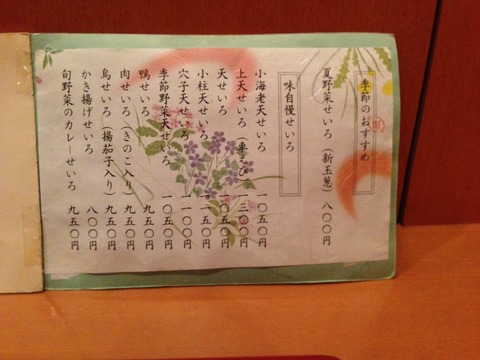 季節のおすすめ
夏野菜せいろ（新玉葱）八〇〇円
味自慢せいろ
小海老天せいろ 一〇五〇円
上天せいろ（車えび） 一三〇〇円
天せいろ 一一五〇円
小柱天せいろ 一一五〇円
穴子天せいろ 一一〇〇円
季節野菜天せいろ 一〇五〇円
鴨せいろ 九五〇円
肉せいろ（きのこ入り）九五〇円
鳥せいろ（揚茄子入り）九五〇円
かき揚げせいろ 八〇〇円
旬野菜のカレーせいろ 九五〇円